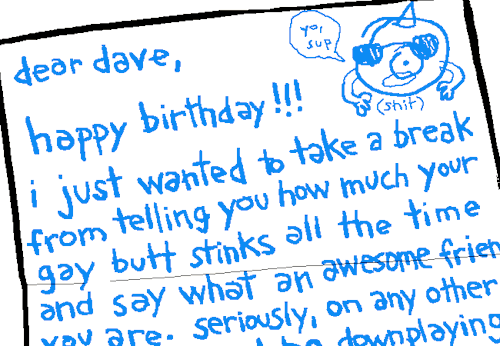 dear dave,
yo, sup
(shit)
happy birthday!!!
i just wanted to take a break
from telling you how much your
gay butt stinks all the time
and say what an awesome frien
you are. seriously, on any other
downplaying